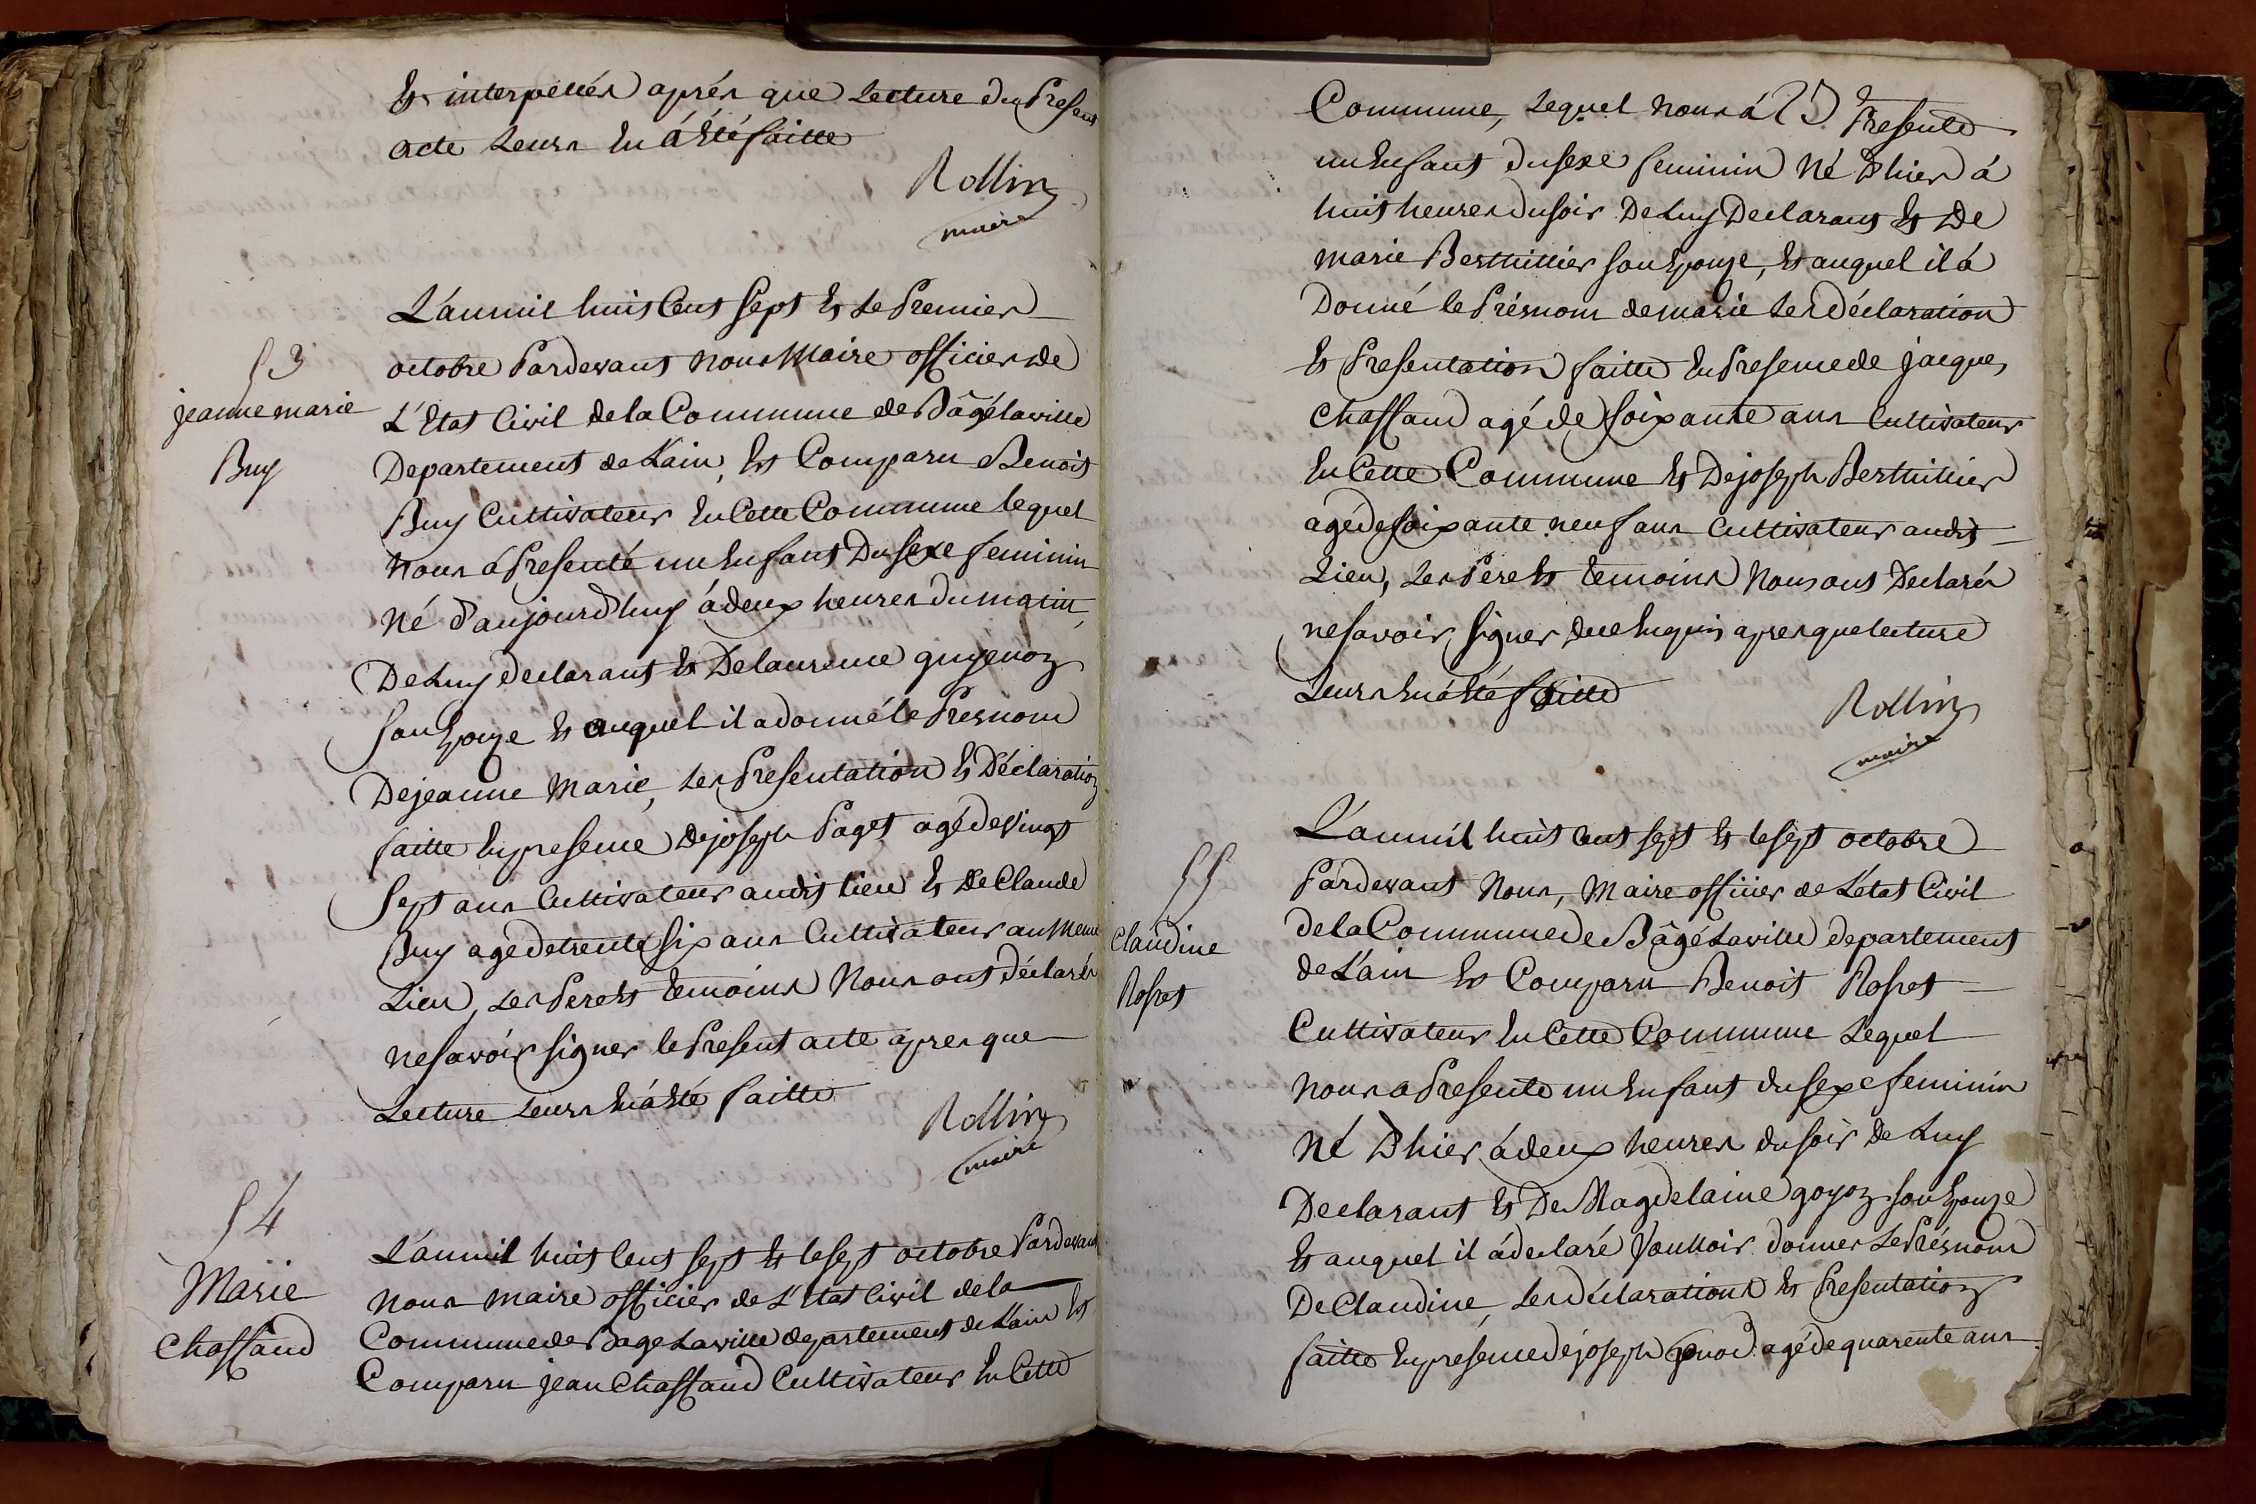 Et interpellés aprés que Lecture du Present
acte Leurs En á Eté faitte
Rollin
maire
53
jeanne marie
Buy
L'an mil huit Cent Sept Et Le Premier
octobre Pardevant Nous Maire officier de
L'Etat Civil de la Commune de Bâgélaville
Departement de L'ain, Est Comparu Benoit
Buy Cultivateur En Cette Commune lequel
Nous á Presenté un Enfant Du Sexe feminin
Né d'aujourd'huy á deux heures du matin,
De Luy declarant Et De laurence guyenoz
son Epouze Et auquel il a donné le Presnom
De jeanne Marie, Les Presentation Et Déclaration
faitte En presence De joseph Paget agé de Vingt
Sept ans Cultivateur audit lieu Et De Claude
Buy age de trente Six ans Cultivateur au Meme
Lieu, Les Pere Et Temoins Nous ont Déclarés
ne Savoir Signer le Present acte apres que
Lecture Leurs En á Eté faitte
Rollin
maire
54
Marie
Chassaud
L'an mil huit Cent Sept Et le Sept octobre Pardevant
Nous maire officier de L'Etat Civil de la
Commune de Bage Laville departement de L'ain Est
Comparu jean Chassaud Cultivateur En Cette
Commune, Lequel Nous á Presenté
un Enfant du Sexe feminin Né D'hier á
huit heures du Soir De Luy Declarant Et De
Marie Berthillier son Epouze, Et auquel il á
Donné le Présnom de marie Les Déclaration
Et Presentation faitte En Presence de jacque,
Chassaud agé de Soixante ans Cultivateur
En Cette Commune Et De joseph Berthillier
agé de Soixante neuf ans Cultivateur audit
Lieu, Les Pere Et Temoins Nous ont Declarés
ne Savoir Signer de ce Enquis apres que lecture
Leurs En á Eté faitte
Rollin
maire
55
Claudine
Rospet
L'an mil huit Cent Sept Et le Sept octobre
Pardevant Nous, Maire officier de L'état Civil
de la Commune de Bâgé Laville departement
de L'ain Est Comparu Benoit Rospet
Cultivateur En Cette Commune Lequel
Nous a Presenté un Enfant du Sexe feminin
Né D'hier á deux heures du soir de Luy
Declarant Et De Magdelaine goyoz son Epouze
Et auquel il á declaré Vouloir donner Le Présnom
De Claudine, Les déclarations Et Presentation
faitte En présence de joseph agé de quarente ans